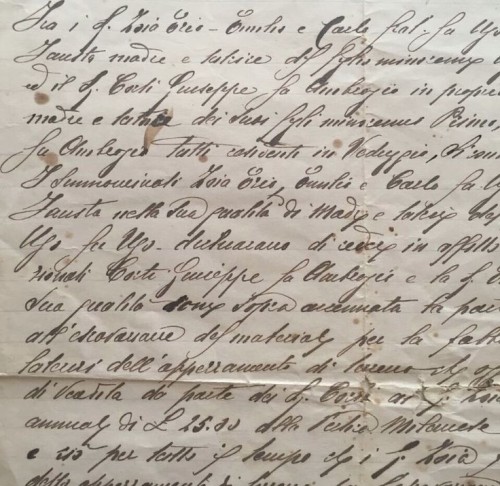 Tra i S. Zoia Ezio - Emilio e Carlo frat. fu Ugo
Fausta madre e tutrice del figlio minorenne
ed il S. Corti Giuseppe fu Ambrogio in proprio
madre e tutrice dei suoi figli minorenni Primo,
fu Ambrogio tutti residenti in Vedeggio, si con
I summominati Zoia Ezio, Emilio e Carlo fu U
Fausta nella sua qualità di Madre e tutrice
Ugo fu Ugo - dichiarano di cedere in affitto
zionati Corti Giuseppe fu Ambrogio e la S.
sua qualità come sopra accennata la
all'escavazione del materiale per la fabb
laterizi dell'appezzamento di terreno
di vendita da parte dei S. Corti ai S. Zoia
annuale di £ 25.00 alla Pertica Milanese
e ciò per tutto il tempo che i S. Zoia
dello appezzamento di terreno